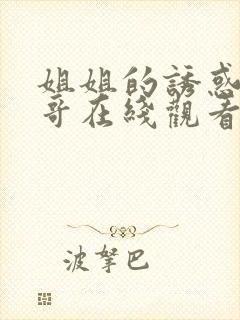 姐姐的誘惑
哥在綫觀看
波拏巴